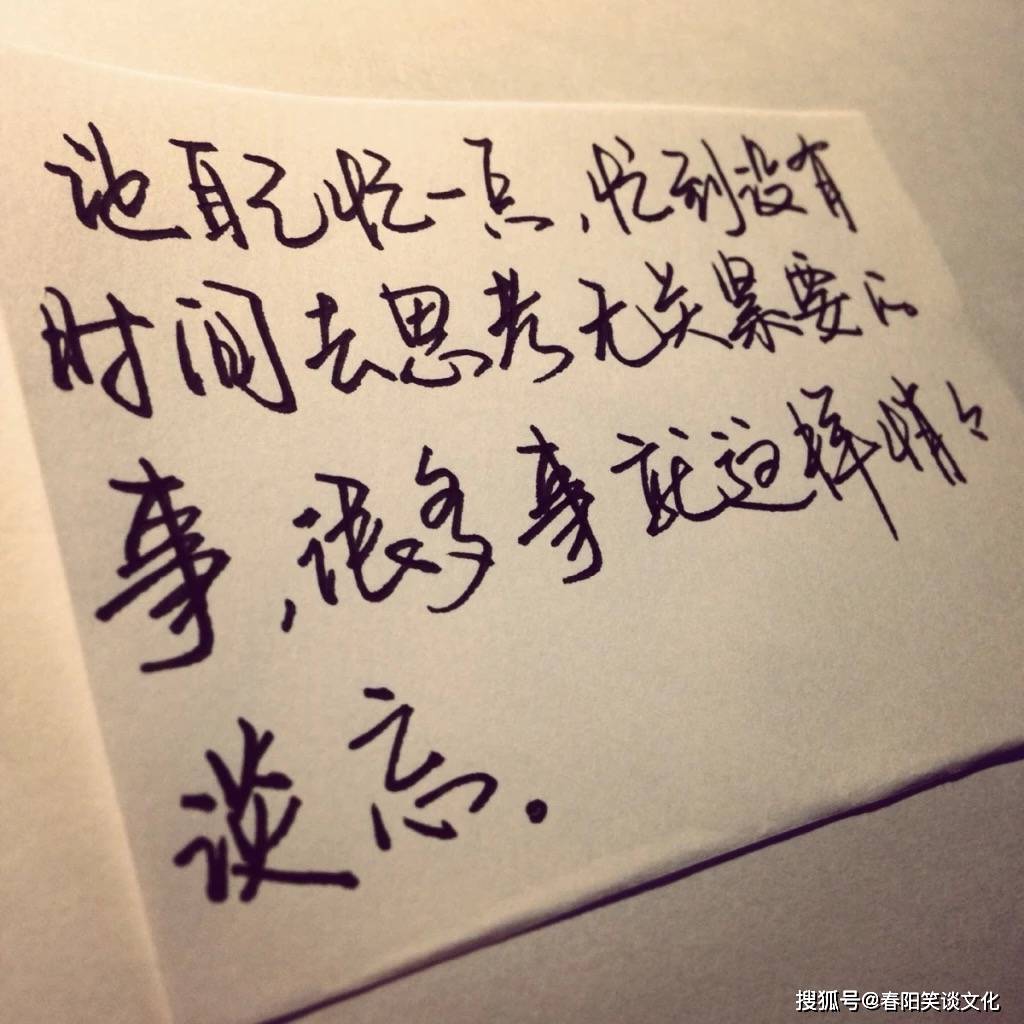 让自己忙一点,忙到没有
时间去思考无关紧要的
事,很多事就这样悄々
谈忘.
搜狐号@春阳笑谈文化